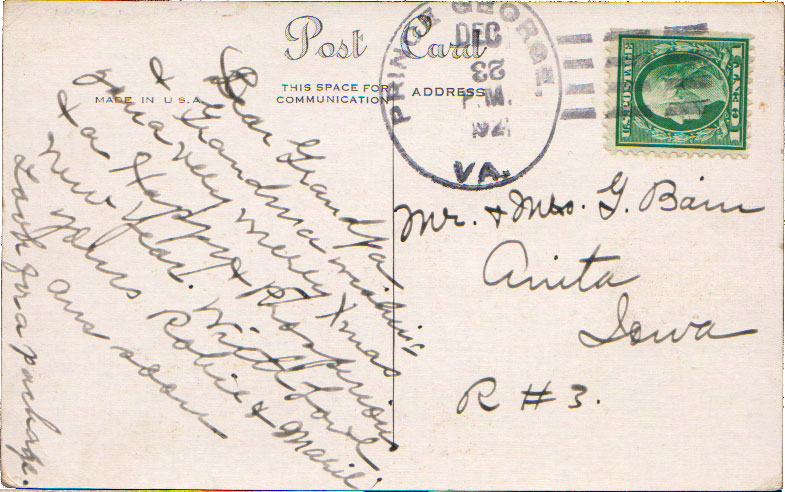 Post Card
THIS SPACE FOR
COMMUNICATION
ADDRESS
MADE IN U.S.A.
PRINCE GEORGE,
DEC
23
P.M.
192
VA.
U.S. POSTAGE
1 CENT 1
Dear Grandpa
& Grandma wishing
you a very merry Xmas
& a Happy & Prosperous
New Year. With Love
yours Robie & Marie
Look for a package.
and soon
Mr. & Mrs. G. Bain
Anita
Iowa
R #3.